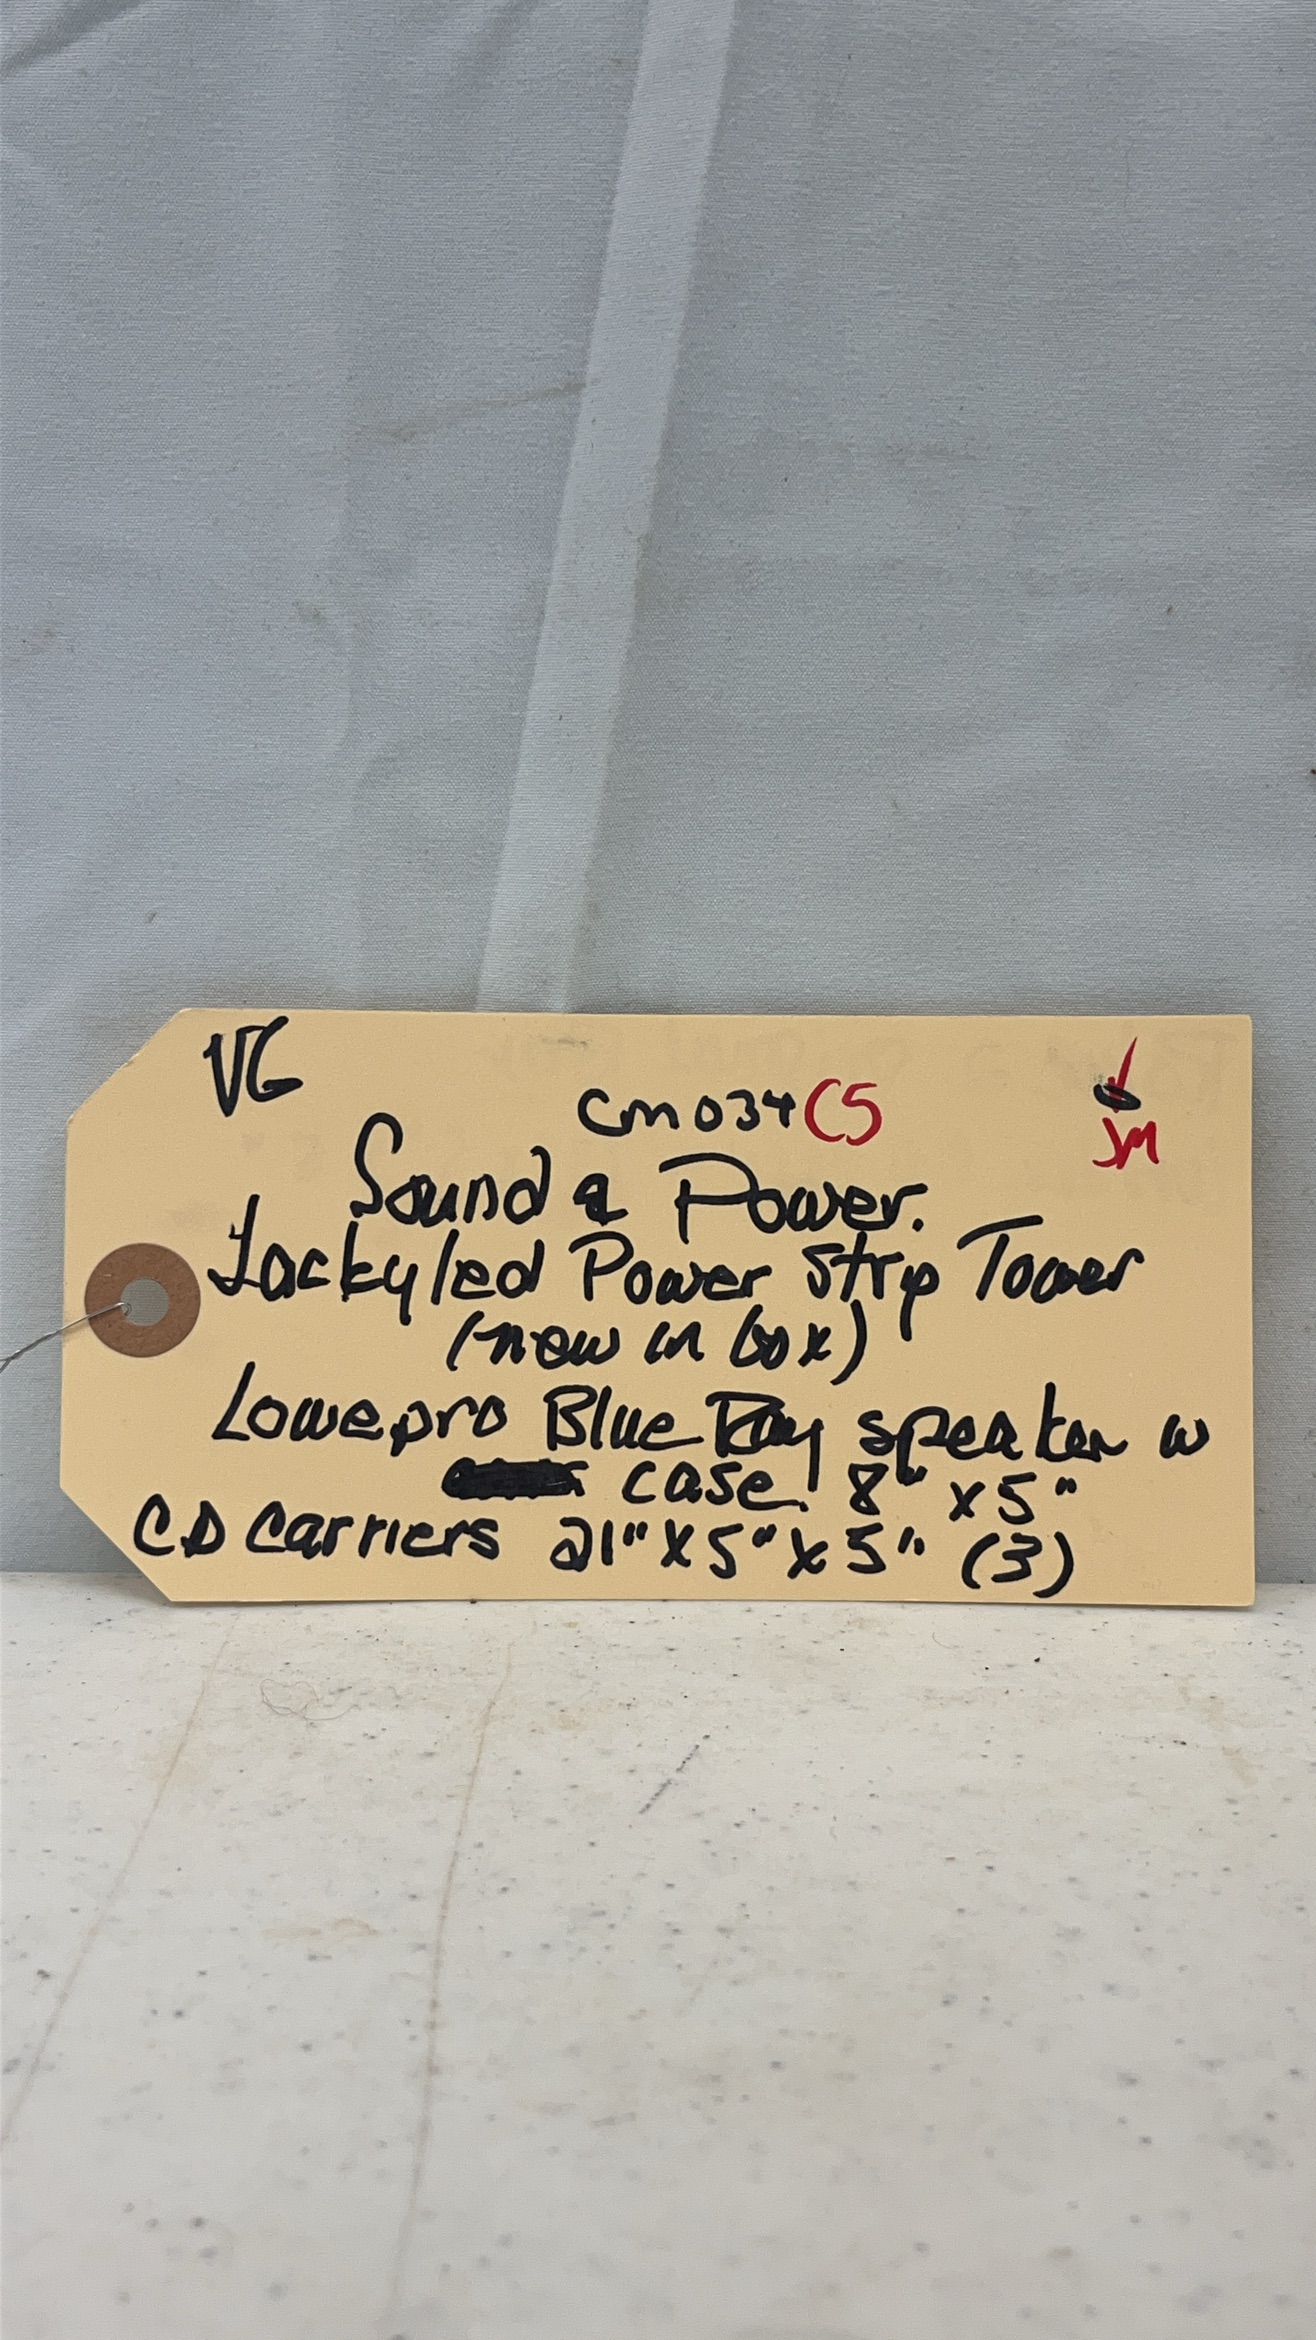 VG
CM034 CS
JM
Sound & Power.
Jackyled Power Strip Tower
(new in box)
Lowepro Blue Ray speaker w
case. 8" x 5"
CD Carriers 21" x 5" x 5" (3)